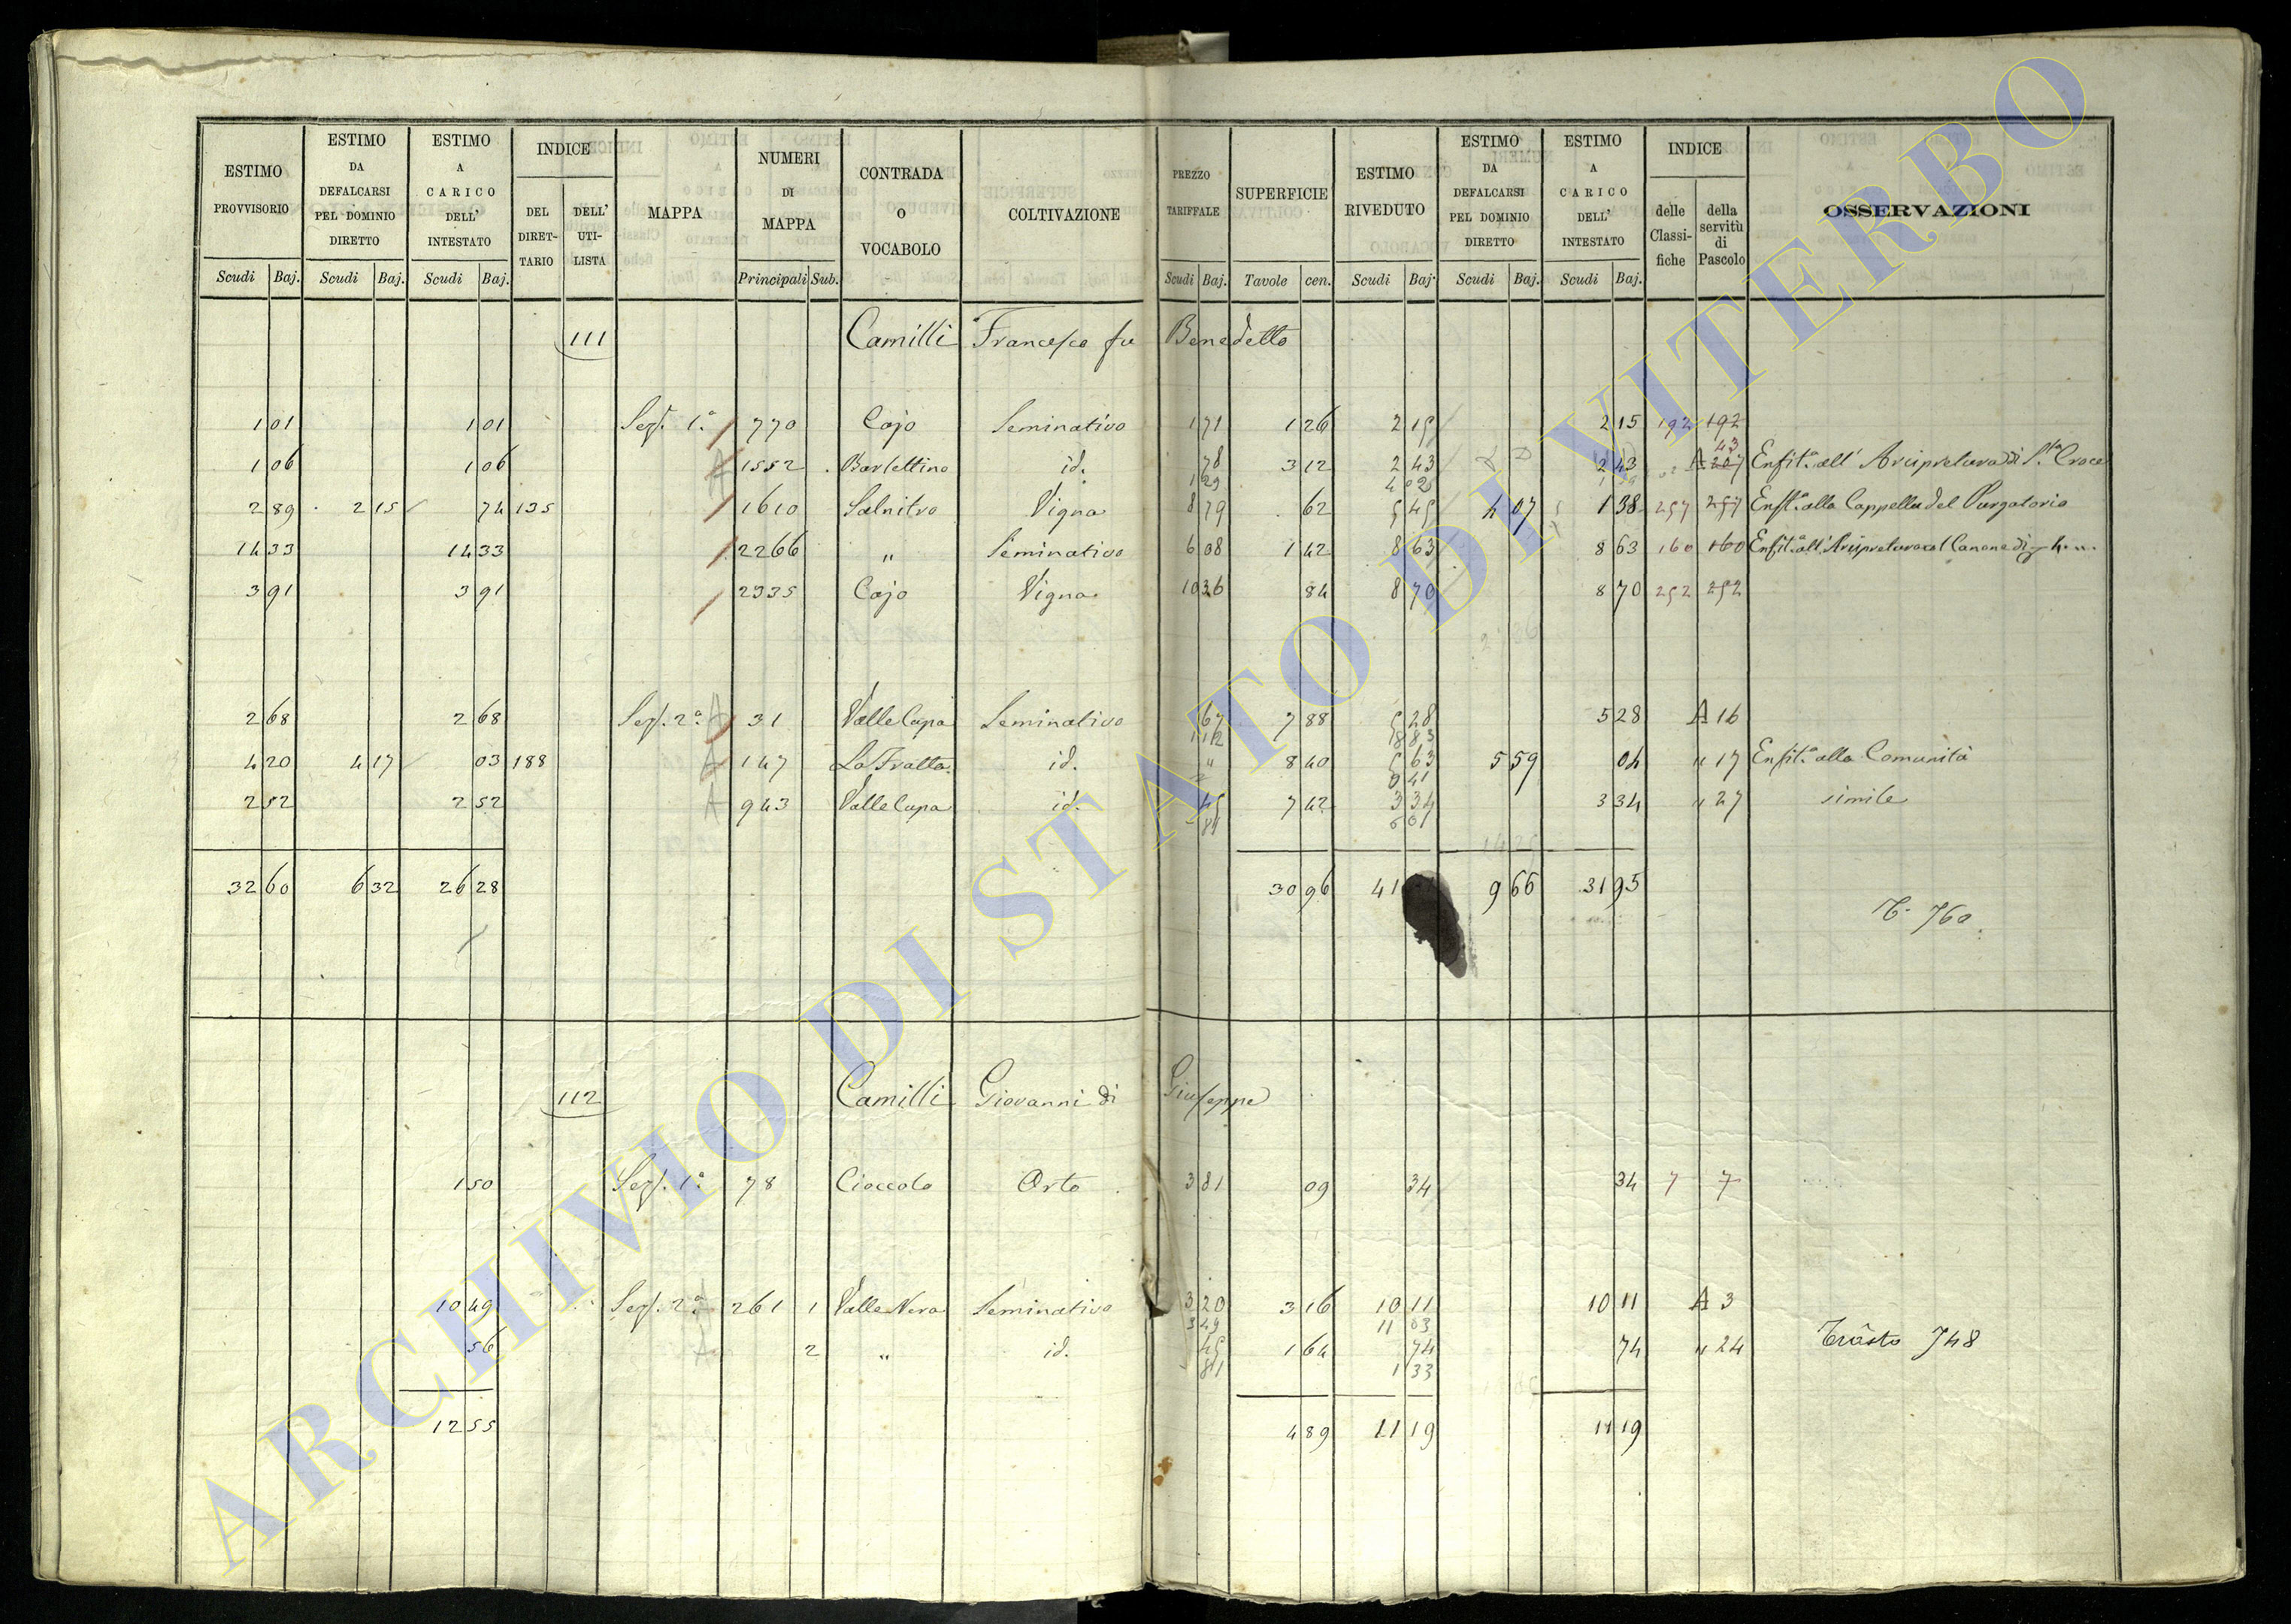 ESTIMO PROVVISORIO Scudi Baj.
ESTIMO DA DEFALCARSI PEL DOMINIO DIRETTO Scudi Baj.
ESTIMO A CARICO DELL' INTESTATO Scudi Baj.
INDICE DEL DIRET-TARIO DELL' UTI-LISTA
MAPPA
NUMERI DI MAPPA Principali Sub.
CONTRADA O VOCABOLO
COLTIVAZIONE
PREZZO TARIFFALE Scudi Baj.
SUPERFICIE Tavole cen.
ESTIMO RIVEDUTO Scudi Baj.
ESTIMO DA DEFALCARSI PEL DOMINIO DIRETTO Scudi Baj.
ESTIMO A CARICO DELL' INTESTATO Scudi Baj.
INDICE delle Classi-fiche della servitù di Pascolo
OSSERVAZIONI
111 Camilli Francesco fu Benedetto
1 01 1 01 Sez. 1a 770 Cajo Seminativo 1 71 1 26 2 15 2 15 192 192
43
1 06 1 06 A 1552 Barlettino id. 78 3 12 2 43 2 43 A 207 Enfit.a all' Arcipretura di S.ta Croce
1 29 4 02
2 89 2 15 74 135 1610 Salnitro Vigna 8 79 62 5 45 4 07 1 38 257 257 Enfit.a alla Cappella del Purgatorio
14 33 14 33 2266 " Seminativo 6 08 1 42 8 63 8 63 160 160 Enfit.a all' Arcipretura col Canone di
3 91 3 91 2335 Cajo Vigna 10 36 84 8 70 8 70 252 252
2 68 2 68 Sez. 2a A 31 Valle Cupa Seminativo 67 7 88 5 28 5 28 A 16
1 12 8 83
4 20 4 17 03 188 A 147 La Fratta id. " 8 40 5 63 5 59 04 " 17 Enfit.a alla Comunità
9 41
2 52 2 52 A 943 Valle Cupa id. 45 7 42 3 34 3 34 " 27 simile
81 6 01
32 60 6 32 26 28 30 96 41 9 66 31 95
T. 760
112 Camilli Giovanni di Giuseppe
1 50 Sez. 1a 78 Cioccolo Orto 3 81 09 34 34 7 7
10 49 Sez. 2a 261 1 Valle Nera Seminativo 3 20 3 16 10 11 10 11 A 3
3 49 11 03
56 A 2 " id. 45 1 64 74 74 " 24 748
81 1 33
12 55 4 89 11 19 11 19
ARCHIVIO DI STATO DI VITERBO